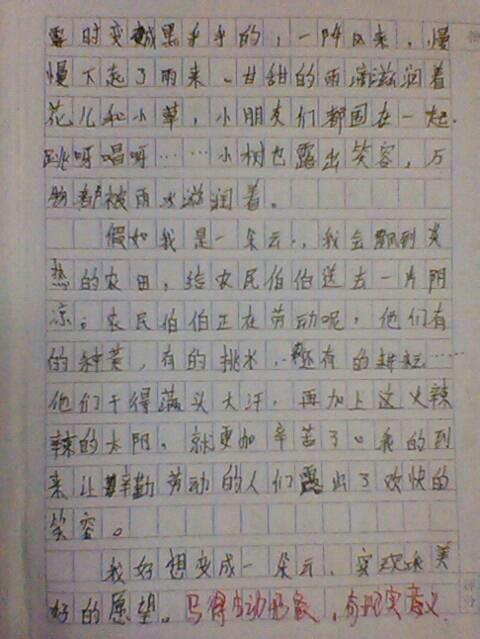 霎时变成黑乎乎的，一阵风来，慢
慢下起了雨来。甘甜的雨滴滋润着
花儿和小草，小朋友们都围在一起，
跳呀唱呀……小树也露出笑容，万
物都被雨水滋润着。
假如我是一朵云，我会飘到炎
热的农田，给农民伯伯送去一片阴
凉；农民伯伯正在劳动呢，他们有
的种菜，有的挑水，还有的耕耘……
他们干得满头大汗，再加上这火辣
辣的太阳，就更加辛苦了。我的到
来让辛勤劳动的人们露出了欢快的
笑容。
我好想变成一朵云，实现美
好的愿望。写得生动形象，有现实意义